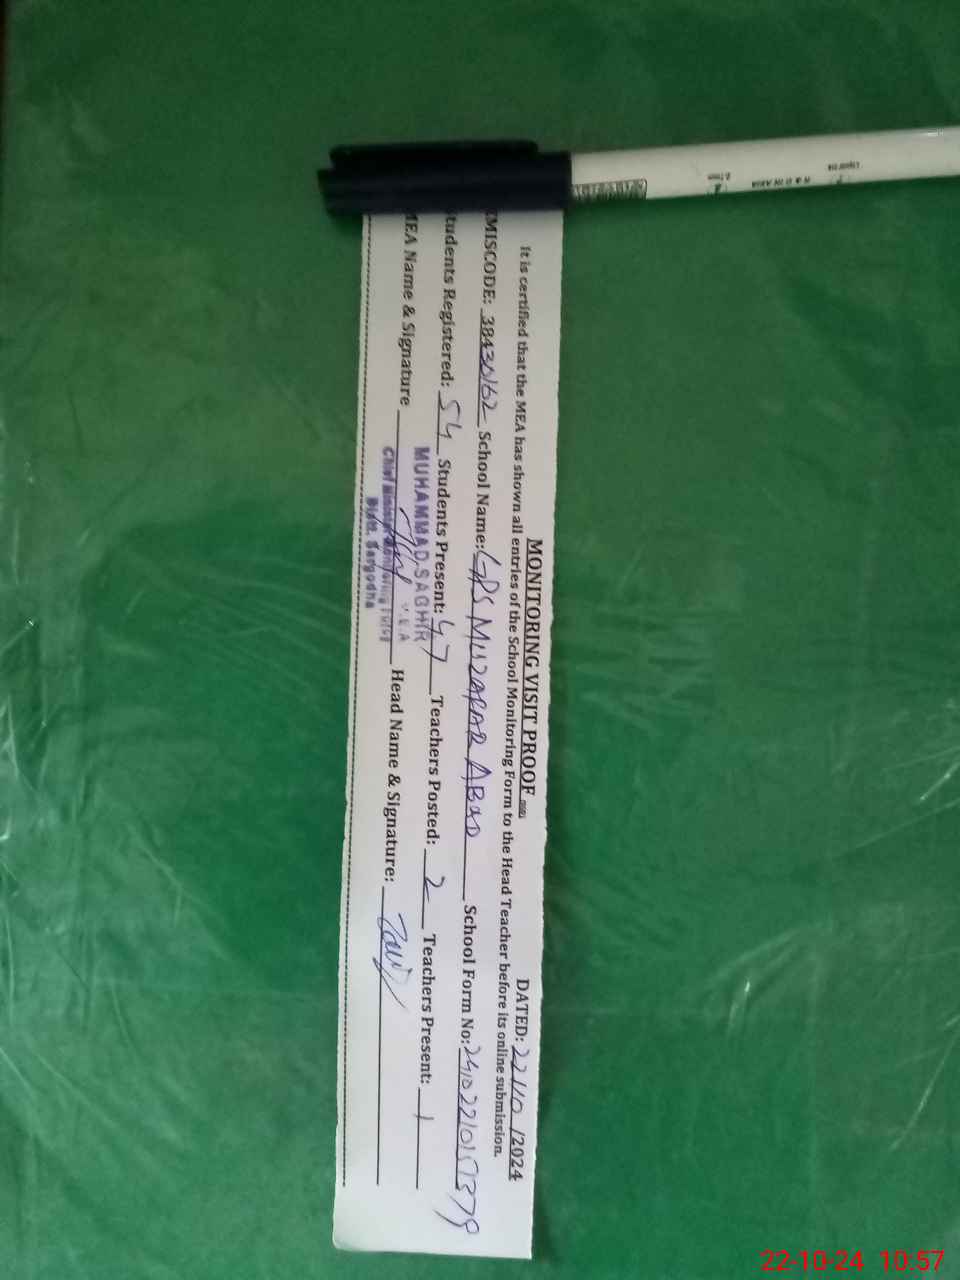 MONITORING VISIT PROOF
DATED: 22/10/2024
It is certified that the MEA has shown all entries of the School Monitoring Form to the Head Teacher before its online submission.
MISCODE: 38430162 School Name: GPS MUZAFAR ABAD School Form No:
tudents Registered: 54 Students Present: 47 Teachers Posted: 2 Teachers Present: 1
MEA Name & Signature Head Name & Signature:
MUHAMMAD SAGHIR
Chief Minister Monitoring Force
Distt. Sargodha
22-10-24 10:57